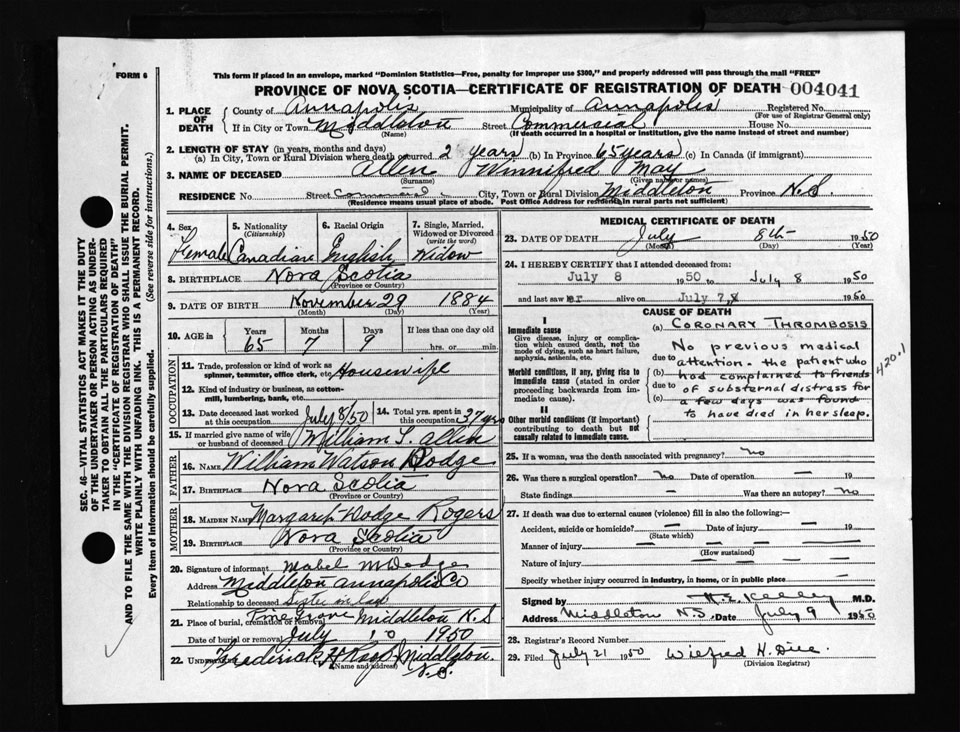 FORM 6
This form if placed in an envelope, marked "Dominion Statistics—Free, penalty for improper use $300," and properly addressed will pass through the mail "FREE"
PROVINCE OF NOVA SCOTIA—CERTIFICATE OF REGISTRATION OF DEATH 004041
1. PLACE OF DEATH { County of Annapolis Municipality of Annapolis Registered No.
(For use of Registrar General only)
If in City or Town Middleton Street Commercial House No.
(Name) (If death occurred in a hospital or institution, give the name instead of street and number)
2. LENGTH OF STAY (in years, months and days)
(a) In City, Town or Rural Division where death occurred 2 years (b) In Province 65 years (c) In Canada (if immigrant)
3. NAME OF DECEASED Allen Winnifred May
(Surname) (Given name or names)
RESIDENCE No. Street Commercial City, Town or Rural Division Middleton Province N.S
(Residence means usual place of abode. Post Office Address for residents in rural parts not sufficient)
4. Sex 5. Nationality (Citizenship) 6. Racial Origin 7. Single, Married, Widowed or Divorced (write the word)
Female Canadian English Widow
8. BIRTHPLACE Nova Scotia
(Province or Country)
9. DATE OF BIRTH November 29 1884
(Month) (Day) (Year)
10. AGE in { Years Months Days If less than one day old
65 7 9 hrs. or min.
OCCUPATION
11. Trade, profession or kind of work as spinner, teamster, office clerk, etc. Housewife
12. Kind of industry or business, as cotton-mill, lumbering, bank, etc.
13. Date deceased last worked at this occupation July 8/50 14. Total yrs. spent in this occupation 37 yrs
15. If married give name of wife or husband of deceased William S. Allen
FATHER
16. NAME William Watson Dodge
17. BIRTHPLACE Nova Scotia
(Province or Country)
MOTHER
18. MAIDEN NAME Margaret Dodge Rogers
19. BIRTHPLACE Nova Scotia
(Province or Country)
20. Signature of informant Mabel M Dodge
Address Middleton Annapolis Co
Relationship to deceased Sister in law
21. Place of burial, cremation or removal Pine Grove Middleton N.S
Date of burial or removal July 10 1950
22. Undertaker Frederick H Middleton.
(Name and address) N.S.
MEDICAL CERTIFICATE OF DEATH
23. DATE OF DEATH July 8th 1950
(Month) (Day) (Year)
24. I HEREBY CERTIFY that I attended deceased from:
July 8 1950 to July 8 1950
and last saw er alive on July 7,8 1950
CAUSE OF DEATH
I
Immediate cause
Give disease, injury or complication which caused death, not the mode of dying, such as heart failure, asphyxia, asthenia, etc.
Morbid conditions, if any, giving rise to immediate cause (stated in order proceeding backwards from immediate cause).
II
Other morbid conditions (if important) contributing to death but not causally related to immediate cause.
(a) CORONARY THROMBOSIS
No previous medical
due to attention. the patient who
(b) had complained to friends
due to of substernal distress for
(c) a few days was found
to have died in her sleep.
420.1
25. If a woman, was the death associated with pregnancy? No
26. Was there a surgical operation? No Date of operation — 19
State findings — Was there an autopsy? No
27. If death was due to external causes (violence) fill in also the following:—
Accident, suicide or homicide? — Date of injury — 19
(State which)
Manner of injury —
(How sustained)
Nature of injury —
Specify whether injury occurred in industry, in home, or in public place —
Signed by H.E. Kelley M.D.
Address Middleton N.S. Date July 9 1950
28. Registrar's Record Number
29. Filed July 21 1950 Wilfred H.
(Division Registrar)
SEC. 46—VITAL STATISTICS ACT MAKES IT THE DUTY
OF THE UNDERTAKER OR PERSON ACTING AS UNDER-
TAKER TO OBTAIN ALL THE PARTICULARS REQUIRED
IN THE "CERTIFICATE OF REGISTRATION OF DEATH"
AND TO FILE THE SAME WITH THE DIVISION REGISTRAR WHO SHALL ISSUE THE BURIAL PERMIT.
WRITE PLAINLY WITH UNFADING INK. THIS IS A PERMANENT RECORD.
Every item of information should be carefully supplied. (See reverse side for instructions.)